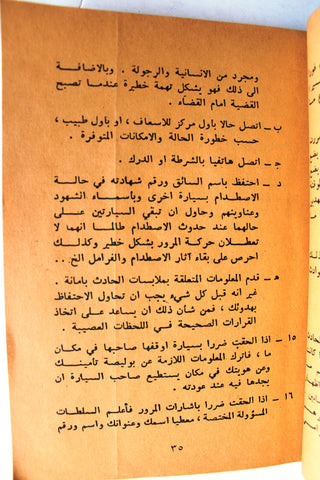 ومجرد من الانسانية والرجولة . وبالاضافة
الى ذلك فهو يشكل تهمة خطيرة عندما تصبح
القضية امام القضاء .
ب ـ اتصل حالا باول مركز للاسعاف ، او باول طبيب ،
حسب خطورة الحالة والامكانات المتوفرة .
ج ـ اتصل هاتفيا بالشرطة او الدرك .
د ـ احتفظ باسم السائق ورقم شهادته في حالة
الاصطدام بسيارة اخرى وباسماء الشهود
وعناوينهم وحاول ان تبقي السيارتين على
حالهما عند حدوث الاصطدام طالما انهما لا
تعطلان حركة المرور بشكل خطير وكذلك
احرص على بقاء آثار الاصطدام والفرامل الخ ..
ه ـ قدم المعلومات المتعلقة بملابسات الحادث بامانة .
غير انه قبل كل شيء يجب ان تحاول الاحتفاظ
بهدوئك ، فمن شأن ذلك ان يساعد على اتخاذ
القرارات الصحيحة في اللحظات العصيبة .
١٥ ـ اذا الحقت ضررا بسيارة اوقفها صاحبها في مكان
ما ، فاترك المعلومات اللازمة عن بوليصة تأمينك
وعن هويتك في مكان يستطيع صاحب السيارة ان
يجدها فيه عند عودته .
١٦ ـ اذا الحقت ضررا باشارات المرور فأعلم السلطات
المسؤولة المختصة ، معطيا اسمك وعنوانك واسم ورقم
٣٥